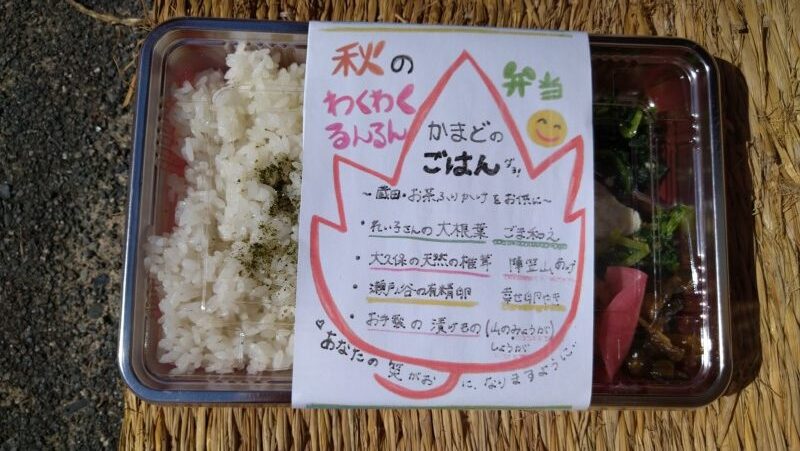 秋の
わくわく
るんるん
弁当
かまどの
ごはん
〜蔵田・お茶ふりかけをお供に〜
・れい子さんの大根葉 ごま和え
・大久保の天然の椎茸 陣笠山あげ
・瀬戸ノ谷の有精卵 幸せ卵やき
・お手製の漬けもの(山のみょうが)
しょうが
あなたの笑がおに、なりますように